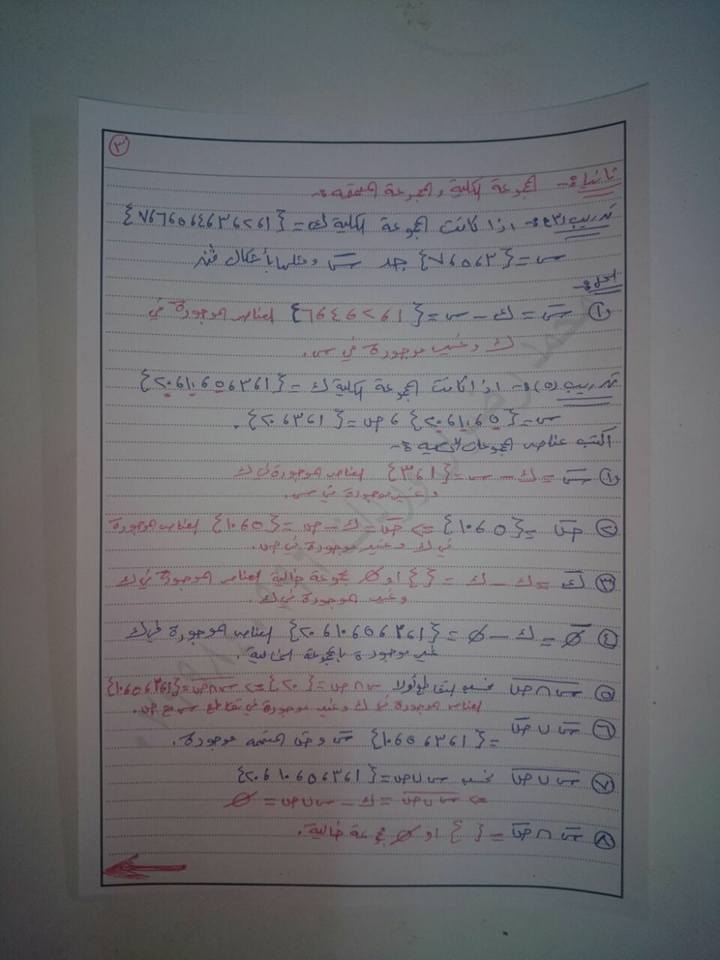 ٣
ثانيًا :- المجموعة الكلية والمجموعة المتممة :-
تدريب (٣) :- اذا كانت المجموعة الكلية ك = {١ ، ٢ ، ٣ ، ٤ ، ٥ ، ٦ ، ٧}
س = {٣ ، ٥ ، ٧} جد س̅ ومثلها بأشكال ڤن
الحل :-
١) س̅ = ك - س = {١ ، ٢ ، ٤ ، ٦} العناصر الموجودة في
ك وغير موجودة في س.
تدريب (٥) :- اذا كانت المجموعة الكلية ك = {١ ، ٣ ، ٥ ، ١٠ ، ٢٠}
س = {٥ ، ١٠ ، ٢٠} ، ص = {١ ، ٣ ، ٢٠}.
اكتب عناصر المجموعات الآتية :-
١) س̅ = ك - س = {١ ، ٣} العناصر الموجودة في ك
وغير موجودة في س.
٢) ص̅ = {٥ ، ١٠} <= ص̅ = ك - ص = {٥ ، ١٠} العناصر الموجودة
في ك وغير موجودة في ص.
٣) ك̅ = ك - ك = { } او ∅ مجموعة خالية العناصر الموجودة في ك
وغير الموجودة في ك.
٤) ∅̅ = ك - ∅ = {١ ، ٣ ، ٥ ، ١٠ ، ٢٠} العناصر الموجودة في ك
غير موجودة بالمجموعة الخالية.
٥) س∩ص̅ نحسب أولا س∩ص = {٢٠} <= س∩ص̅ = {١ ، ٣ ، ٥ ، ١٠}
العناصر الموجودة في ك وغير موجودة في تقاطع س مع ص.
٦) س̅ ∪ ص̅ = {١ ، ٣ ، ٥ ، ١٠} س̅ و ص̅ المتممة موجودة.
٧) س∪ص̅ نحسب س∪ص = {١ ، ٣ ، ٥ ، ١٠ ، ٢٠}
<= س∪ص̅ = ك - س∪ص = ∅
٨) س̅ ∩ ص̅ = { } او ∅ مجموعة خالية.